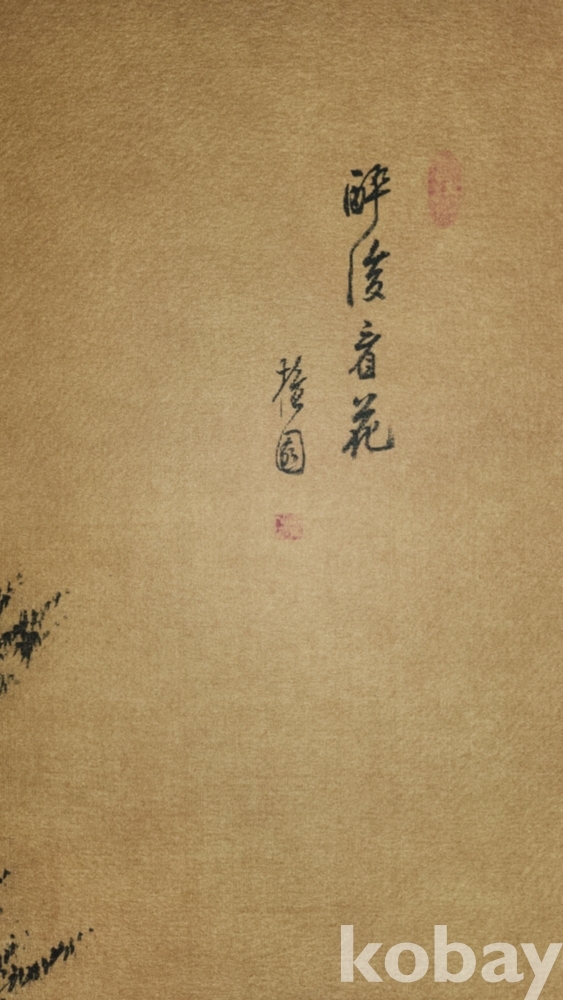 醉後看花
檀園
kobay